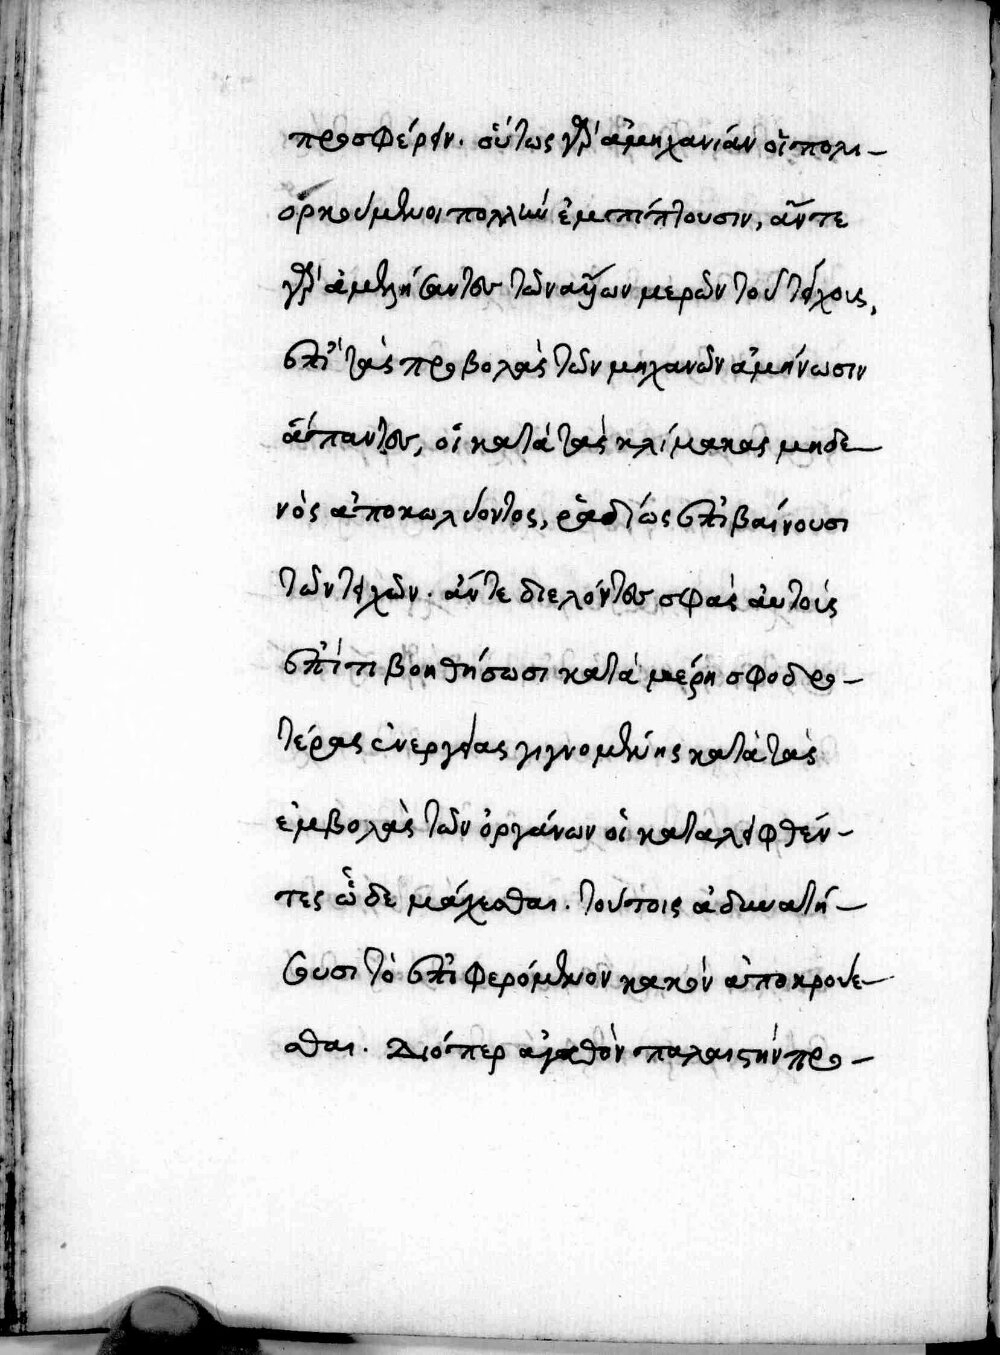 προσφέρειν. οὕτως γὰρ ἀμηχανίαν οἱ πολι-
ορκούμενοι πολλὴν ἐμπίπτουσιν, ἄν τε
γὰρ ἀμελήσαντες τῶν ἄλλων μερῶν τοῦ τείχους,
ἐπὶ τὰς προβολὰς τῶν μηχανῶν ἀμήνωσιν
ἅπαντες, οἱ κατὰ τὰς κλίμακας μηδε-
νὸς ἀποκωλύοντος, ῥαδίως ἐπιβαίνουσι
τῶν τειχῶν. ἄν τε διελόντες σφᾶς αὐτοὺς
ἐπί τι βοηθήσωσι κατὰ μέρη σφοδρο-
τέρας ἐνεργείας γιγνομένης κατὰ τὰς
ἐμβολὰς τῶν ὀργάνων οἱ καταλειφθέν-
τες ὧδε μάχεσθαι. τούτοις ἀδυνατή-
σουσι τὸ ἐπιφερόμενον κακὸν ἀποκρούε-
σθαι. Διόπερ ἀγαθὸν παλαιστὴν προ-